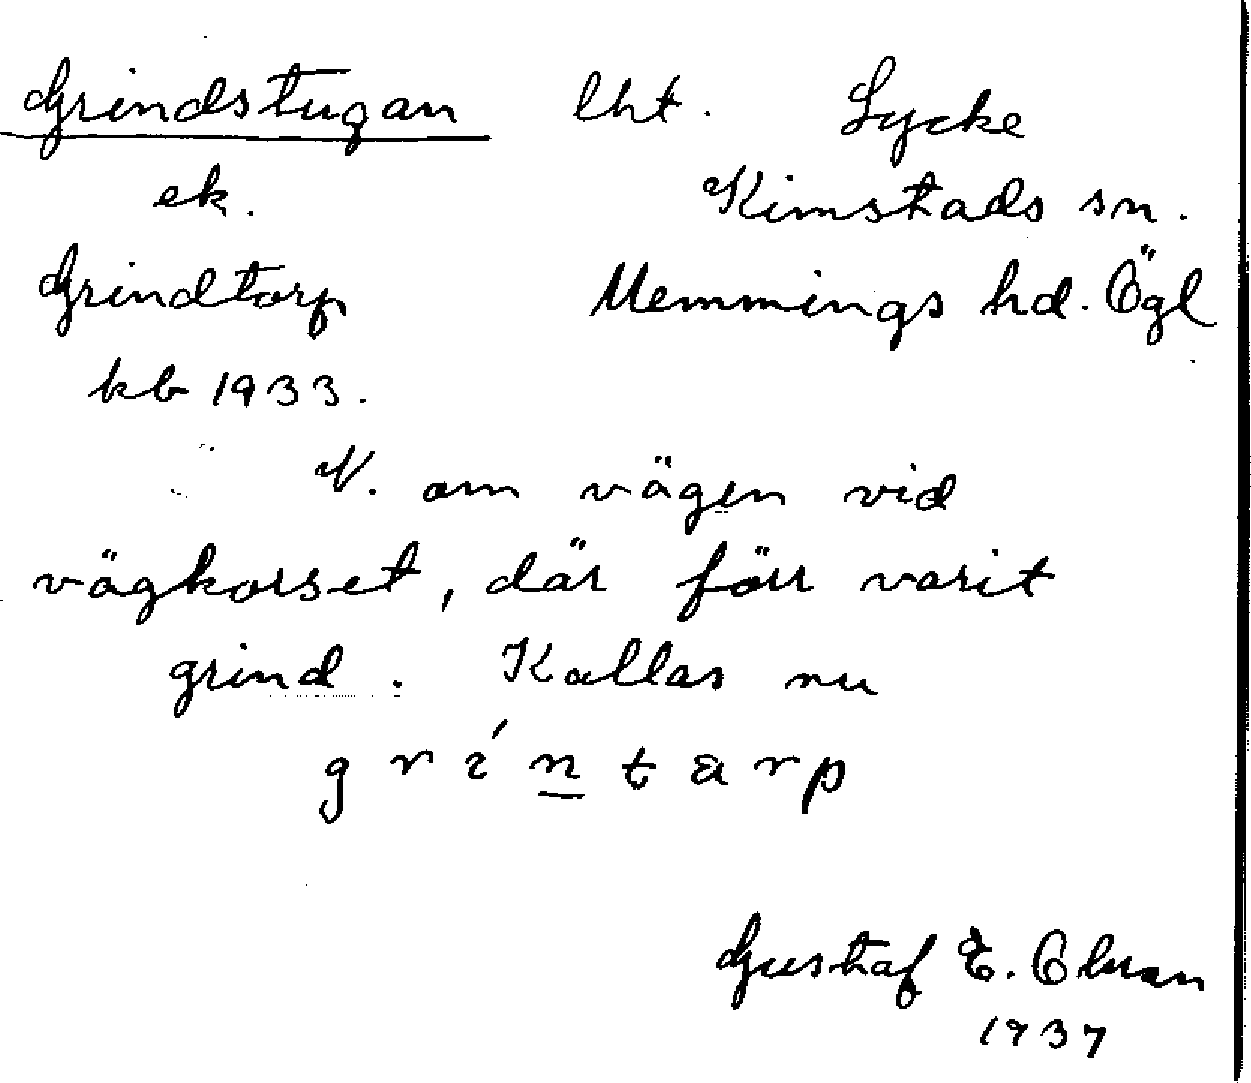 Grindstugan lht. Lycke
ek. Kimstads sn.
Grindtorp Memmings hd. Ögl
kb 1933.
N. om vägen vid
vägkorset, där förr varit
grind. Kallas nu
gríntarp
Gustaf E.
1937